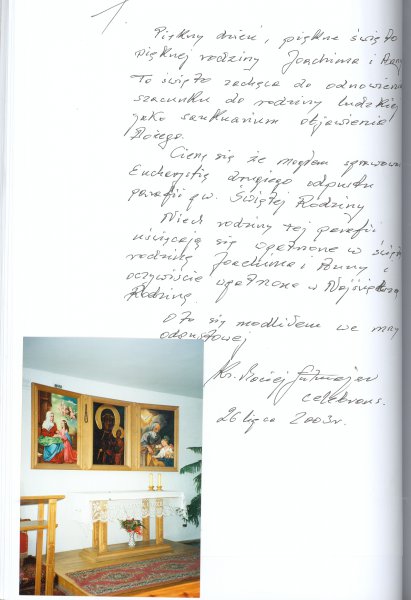 1.
Piękny dzień, piękne święto
pięknej rodziny Joachima i Anny
To święto zachęca do odnowienia
szacunku do rodziny ludzkiej
jako sanktuarium objawienia
Bożego.
Cieszę się że mogłem sprawować
Eucharystię drugiego odpustu
parafii p.w. Świętej Rodziny
Niech rodziny tej parafii
uświęcają się wpatrzone w świętą
rodzinę Joachima i Anny i
oczywiście wpatrzone w Najświętszą
Rodzinę.
O to się modliłem we mszy
odpustowej
Ks. Maciej
celebrans.
26 lipca 2003r.